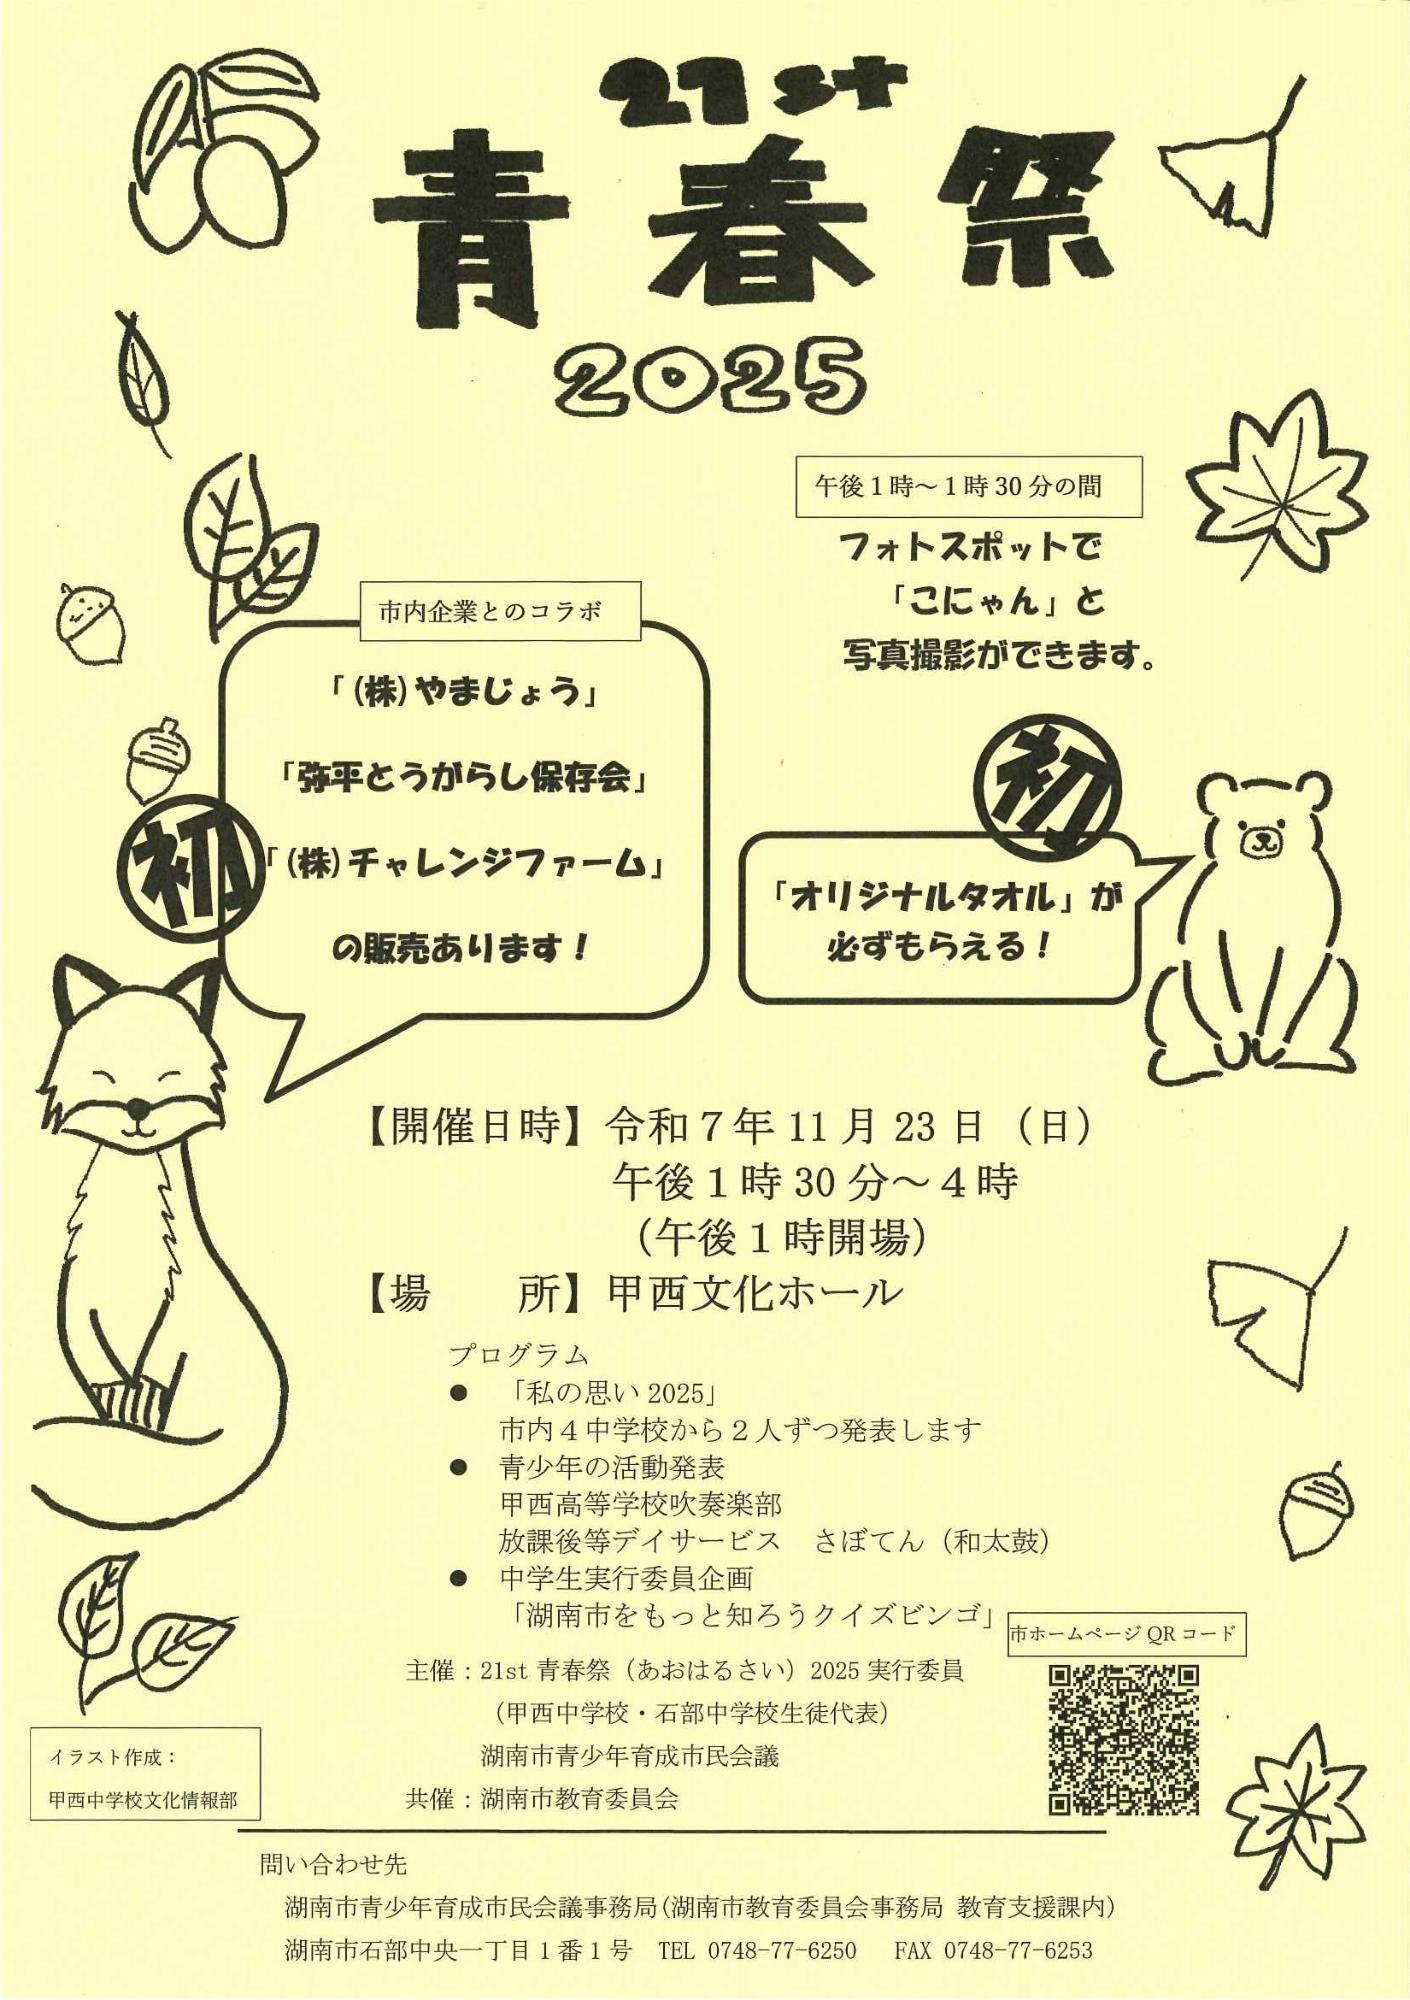 21st
青春祭
2025
午後１時～１時30分の間
フォトスポットで
「こにゃん」と
写真撮影ができます。
市内企業とのコラボ
「(株)やまじょう」
「弥平とうがらし保存会」
「(株)チャレンジファーム」
の販売あります！
初
初
「オリジナルタオル」が
必ずもらえる！
【開催日時】令和７年11月23日（日）
午後１時30分～４時
（午後１時開場）
【場　　所】甲西文化ホール
プログラム
●　「私の思い2025」
市内４中学校から２人ずつ発表します
●　青少年の活動発表
甲西高等学校吹奏楽部
放課後等デイサービス　さぼてん（和太鼓）
●　中学生実行委員企画
「湖南市をもっと知ろうクイズビンゴ」
市ホームページQRコード
主催：21st青春祭（あおはるさい）2025実行委員
（甲西中学校・石部中学校生徒代表）
湖南市青少年育成市民会議
共催：湖南市教育委員会
イラスト作成：
甲西中学校文化情報部
問い合わせ先
湖南市青少年育成市民会議事務局(湖南市教育委員会事務局 教育支援課内)
湖南市石部中央一丁目１番１号　TEL 0748-77-6250　FAX 0748-77-6253